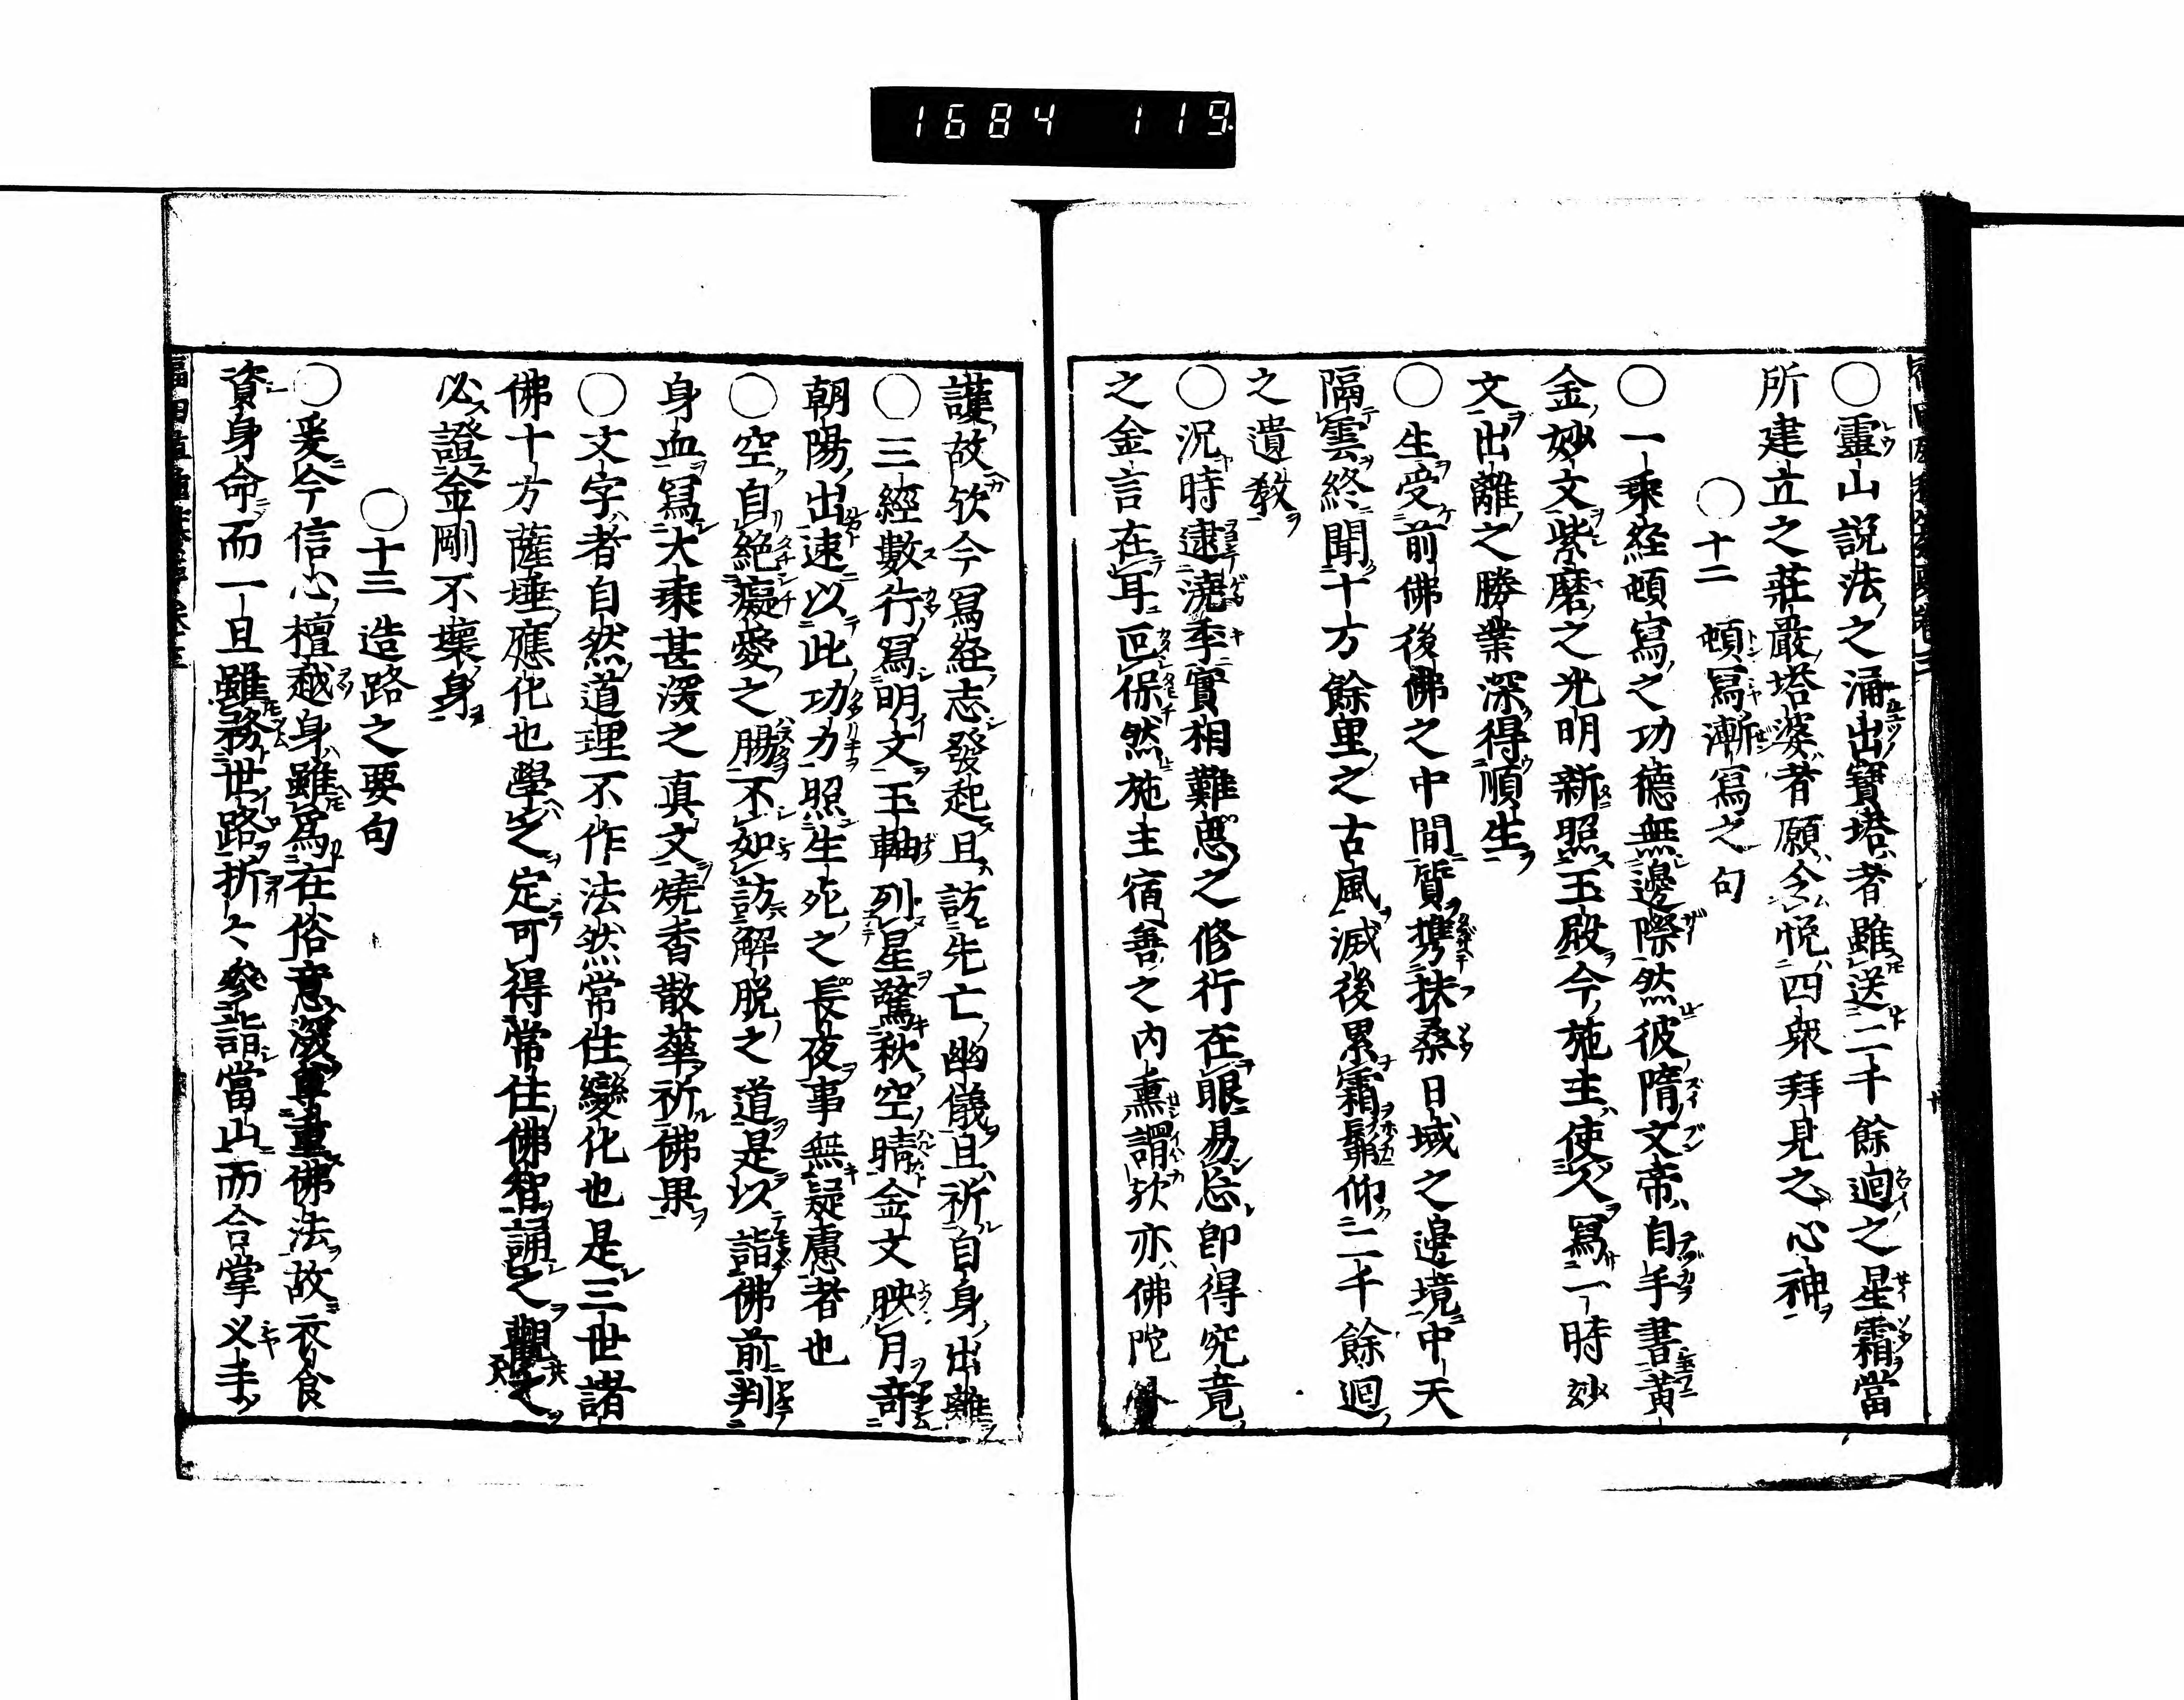 1684 119
○靈山説法之涌出寶塔者雖送二千餘廻之星霜當
所建立之莊嚴塔婆者願令悦四衆拜見之心神
○十二 頓寫漸寫之句
○一乘經頓寫之功德無邊際然彼隋文帝自手書黄
金妙文紫磨之光明新照玉殿今施主使人寫一時妙
文出離之勝業深得順生
○生受前佛後佛之中間質携扶桑日域之邊境中天
隔雲終聞十方餘里之古風滅後累霜鬅仰二千餘廻
之遺教
○況時逮澆季實相難思之修行在眼易忘即得究竟
之金言在耳叵保然施主宿善之内熏謂欤亦佛陀外
護故欤今冩經志發起且訪先亡幽儀且祈自身出離
○三經數行冩明文玉軸列星驚秋空晴金文映月竒
朝陽出速以此功力照生死之長夜事無疑慮者也
○空自絶癡愛之腸不如訪解脱之道是以詣佛前判
身血冩大乘甚深之真文燒香散華祈佛果
○文字者自然道理不作法然常住變化也是三世諸
佛十方薩埵應化也學之定可得常住佛智誦之觀之
必證金剛不壞身
○十三 造路之要句
○爰今信心檀越身雖爲在俗意深尊重佛法故衣食
資身命而一旦雖務世路折々參詣當山而合掌义手